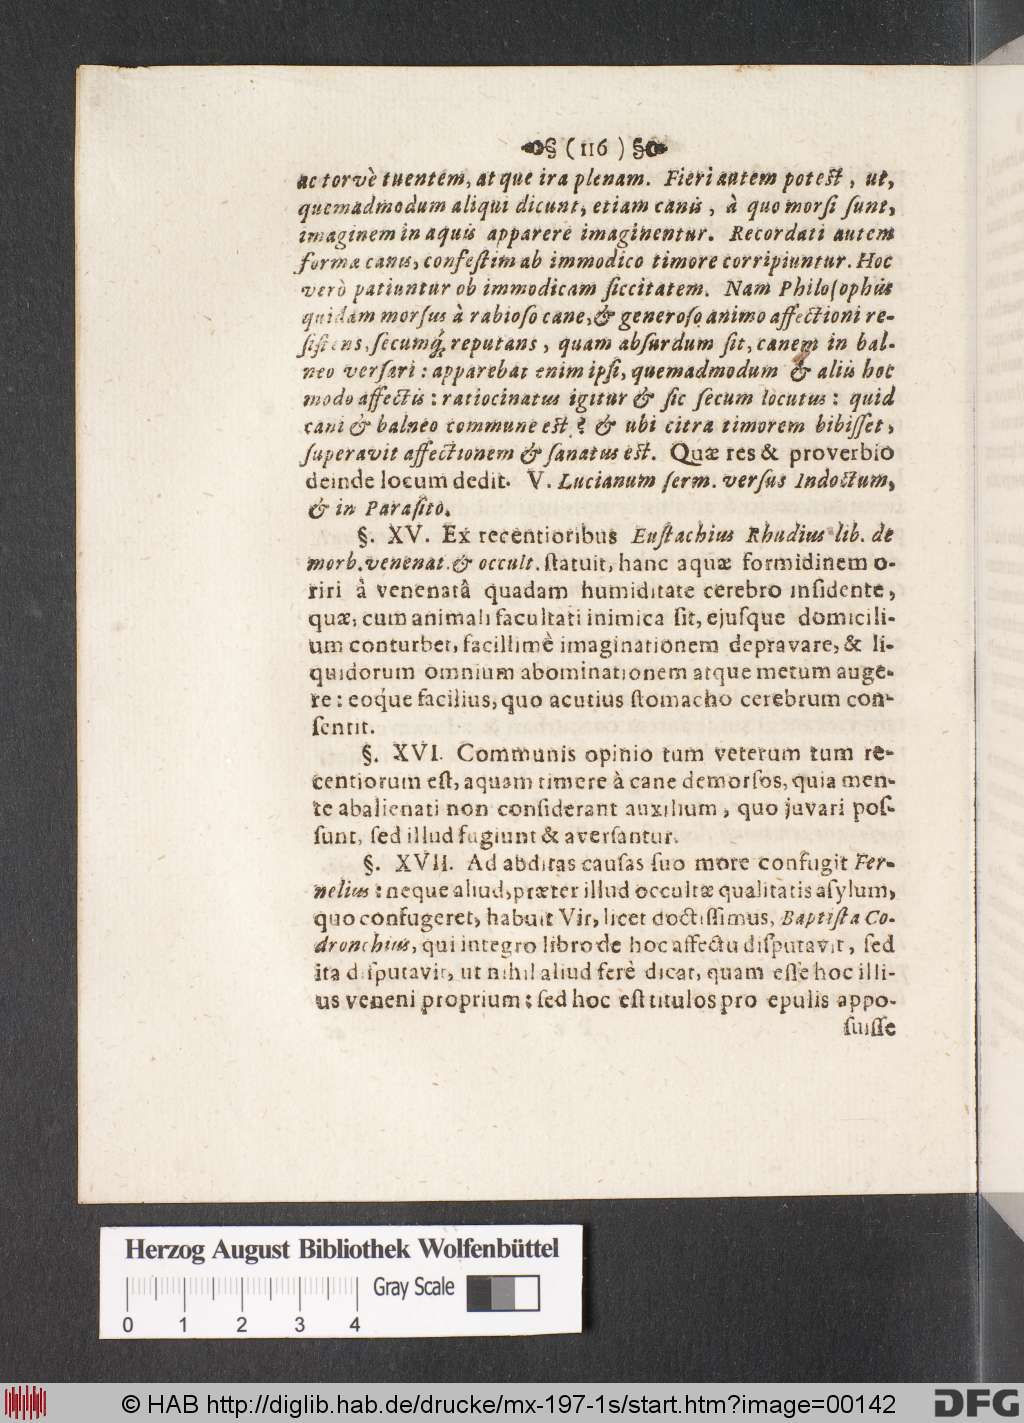 § ( 116 ) §
ac torvè tuentem, atque ira plenam. Fieri autem potest, ut,
quemadmodum aliqui dicunt, etiam canis, à quo morsi sunt,
imaginem in aquis apparere imaginentur. Recordati autem
formæ canis, confestim ab immodico timore corripiuntur. Hoc
verò patiuntur ob immodicam siccitatem. Nam Philosophus
quidam morsus à rabioso cane, & generoso animo affectioni re-
sistens, secumq́; reputans, quam absurdum sit, canem in bal-
neo versari: apparebat enim ipsi, quemadmodum & aliis hoc
modo affectis: ratiocinatus igitur & sic secum locutus: quid
cani & balneo commune est? & ubi citra timorem bibisset,
superavit affectionem & sanatus est. Quæ res & proverbio
deinde locum dedit. V. Lucianum serm. versus Indoctum,
& in Parasito.
§. XV. Ex recentioribus Eustachius Rhudius lib. de
morb. venenat. & occult. statuit, hanc aquæ formidinem o-
riri à venenatâ quadam humiditate cerebro insidente,
quæ, cum animali facultati inimica sit, ejusque domicili-
um conturbet, facillimè imaginationem depravare, & li-
quidorum omnium abominationem atque metum auge-
re: eoq́ue facilius, quo acutius stomacho cerebrum con-
sentit.
§. XVI. Communis opinio tum veterum tum re-
centiorum est, aquam timere à cane demorsos, quia men-
te abalienati non considerant auxilium, quo juvari pos-
sunt, sed illud fugiunt & aversantur.
§. XVII. Ad abditas causas suo more confugit Fer-
nelius: neque aliud, præter illud occultæ qualitatis asylum,
quo confugeret, habuit Vir, licet doctissimus, Baptista Co-
dronchius, qui integro libro de hoc affectu disputavit, sed
ita disputavit, ut nihil aliud ferè dicat, quam esse hoc illi-
us veneni proprium: sed hoc est titulos pro epulis appo-
suisse
Herzog August Bibliothek Wolfenbüttel
Gray Scale
0 1 2 3 4
© HAB http://diglib.hab.de/drucke/mx-197-1s/start.htm?image=00142
DFG